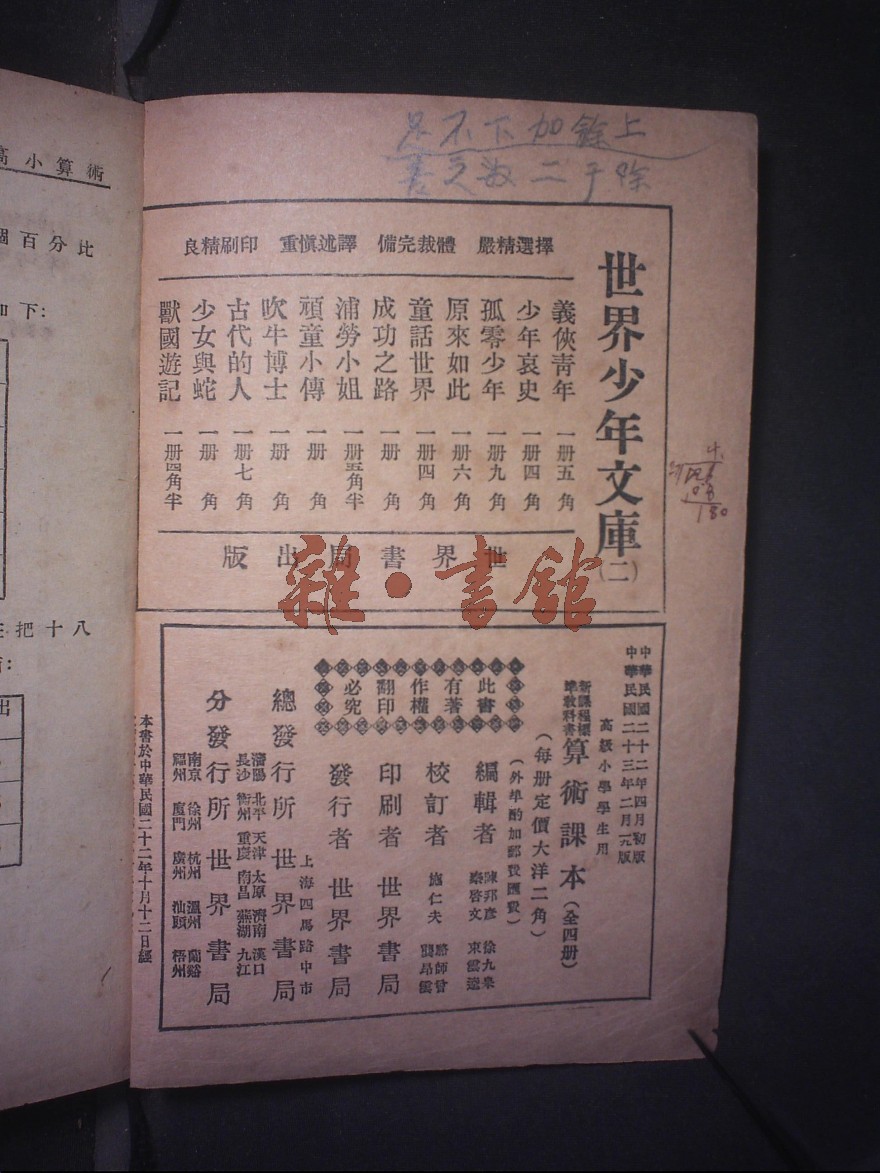 上餘加下不足
高小算術
個百分比
如下:
把十八
出
擇選精嚴 體裁完備 譯述慎重 印刷精良
世界少年文庫(二)
義俠青年 一册五角
少年哀史 一册四角
孤零少年 一册九角
原來如此 一册六角
童話世界 一册四角
成功之路 一册 角
浦勞小姐 一册五角半
頑童小傳 一册 角
吹牛博士 一册 角
古代的人 一册七角
少女與蛇 一册 角
獸國遊記 一册四角半
世界書局出版
雜·書館
中華民國二十二年四月初版
中華民國二十三年二月一九版
高級小學學生用
新課程標準教科書
算術課本(全四册)
(每册定價大洋二角)
(外埠酌加郵費匯費)
此書有著作權翻印必究
編輯者 陳邦彥 徐九皋 秦啓文 束雲逵
校訂者 施仁夫 駱師曾 龔昂雲
印刷者 世界書局
發行者 世界書局
上海四馬路中市
總發行所 世界書局
瀋陽 北平 天津 太原 濟南 漢口
長沙 衢州 重慶 南昌 蕪湖 九江
分發行所 世界書局
南京 徐州 杭州 溫州 蘭谿
福州 廈門 廣州 汕頭 梧州
本書於中華民國二十二年十月十二日經